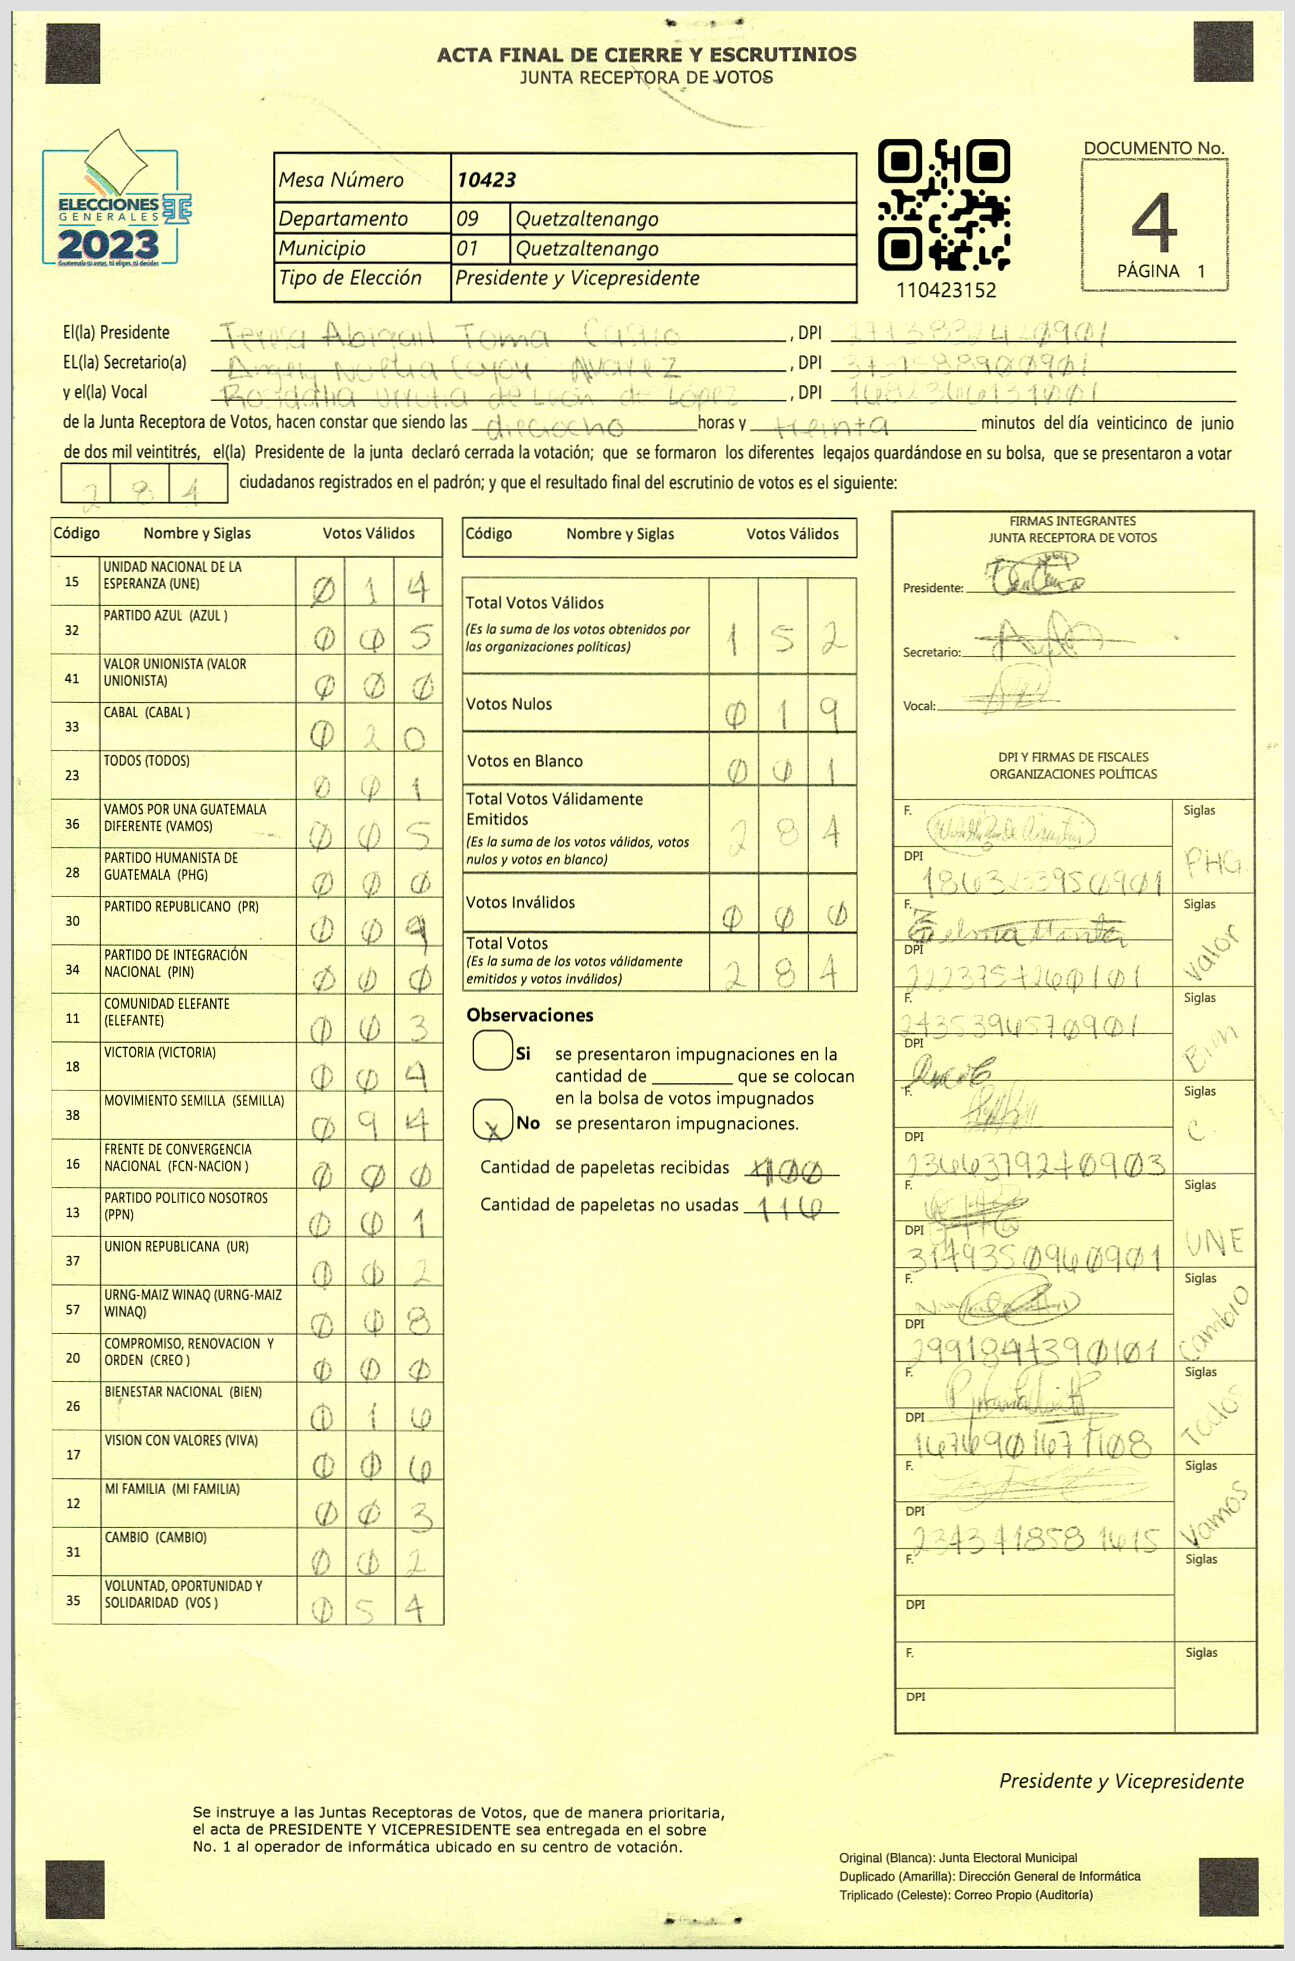 ACTA FINAL DE CIERRE Y ESCRUTINIOS
JUNTA RECEPTORA DE VOTOS
ELECCIONES
GENERALES
2023
Guatemala tú votas, tú eliges, tú decides
Mesa Número 10423
Departamento 09 Quetzaltenango
Municipio 01 Quetzaltenango
Tipo de Elección Presidente y Vicepresidente
110423152
DOCUMENTO No.
4
PÁGINA 1
El(la) Presidente Teresa Abigail Toma Castro, DPI
EL(la) Secretario(a) Alvarez, DPI
y el(la) Vocal Urrutia de León de López, DPI
de la Junta Receptora de Votos, hacen constar que siendo las dieciocho horas y treinta minutos del día veinticinco de junio
de dos mil veintitrés, el(la) Presidente de la junta declaró cerrada la votación; que se formaron los diferentes legajos quardándose en su bolsa, que se presentaron a votar
284 ciudadanos registrados en el padrón; y que el resultado final del escrutinio de votos es el siguiente:
Código Nombre y Siglas Votos Válidos
15 UNIDAD NACIONAL DE LA ESPERANZA (UNE) 0 1 4
32 PARTIDO AZUL (AZUL ) 0 0 5
41 VALOR UNIONISTA (VALOR UNIONISTA) 0 0 0
33 CABAL (CABAL ) 0 2 0
23 TODOS (TODOS) 0 0 1
36 VAMOS POR UNA GUATEMALA DIFERENTE (VAMOS) 0 0 5
28 PARTIDO HUMANISTA DE GUATEMALA (PHG) 0 0 0
30 PARTIDO REPUBLICANO (PR) 0 0
34 PARTIDO DE INTEGRACIÓN NACIONAL (PIN) 0 0 0
11 COMUNIDAD ELEFANTE (ELEFANTE) 0 0 3
18 VICTORIA (VICTORIA) 0 0
38 MOVIMIENTO SEMILLA (SEMILLA) 0 9 4
16 FRENTE DE CONVERGENCIA NACIONAL (FCN-NACION ) 0 0 0
13 PARTIDO POLITICO NOSOTROS (PPN) 0 0 1
37 UNION REPUBLICANA (UR) 0 0 2
57 URNG-MAIZ WINAQ (URNG-MAIZ WINAQ) 0 0 8
20 COMPROMISO, RENOVACION Y ORDEN (CREO ) 0 0 0
26 BIENESTAR NACIONAL (BIEN) 0 1 6
17 VISION CON VALORES (VIVA) 0 0 6
12 MI FAMILIA (MI FAMILIA) 0 0 3
31 CAMBIO (CAMBIO) 0 0 2
35 VOLUNTAD, OPORTUNIDAD Y SOLIDARIDAD (VOS ) 0 5 4
Código Nombre y Siglas Votos Válidos
Total Votos Válidos 1 5 2
(Es la suma de los votos obtenidos por
las organizaciones políticas)
Votos Nulos 0 1 9
Votos en Blanco 0 0 1
Total Votos Válidamente
Emitidos 2 8 4
(Es la suma de los votos válidos, votos
nulos y votos en blanco)
Votos Inválidos 0 0 0
Total Votos 2 8 4
(Es la suma de los votos válidamente
emitidos y votos inválidos)
Observaciones
Si se presentaron impugnaciones en la
cantidad de ________ que se colocan
en la bolsa de votos impugnados
X No se presentaron impugnaciones.
Cantidad de papeletas recibidas 400
Cantidad de papeletas no usadas 116
FIRMAS INTEGRANTES
JUNTA RECEPTORA DE VOTOS
Presidente:
Secretario:
Vocal:
DPI Y FIRMAS DE FISCALES
ORGANIZACIONES POLÍTICAS
F. Siglas
DPI PHG
F. Siglas
DPI Valor
F. Siglas
DPI Bien
F. Siglas
DPI 2366379270903 C.
F. Siglas
DPI 3149350960901 UNE
F. Siglas
DPI Cambio
F. Siglas
DPI 1676901671108 Todos
F. Siglas
DPI Vamos
F. Siglas
DPI
F. Siglas
DPI
Presidente y Vicepresidente
Se instruye a las Juntas Receptoras de Votos, que de manera prioritaria,
el acta de PRESIDENTE Y VICEPRESIDENTE sea entregada en el sobre
No. 1 al operador de informática ubicado en su centro de votación.
Original (Blanca): Junta Electoral Municipal
Duplicado (Amarilla): Dirección General de Informática
Triplicado (Celeste): Correo Propio (Auditoría)